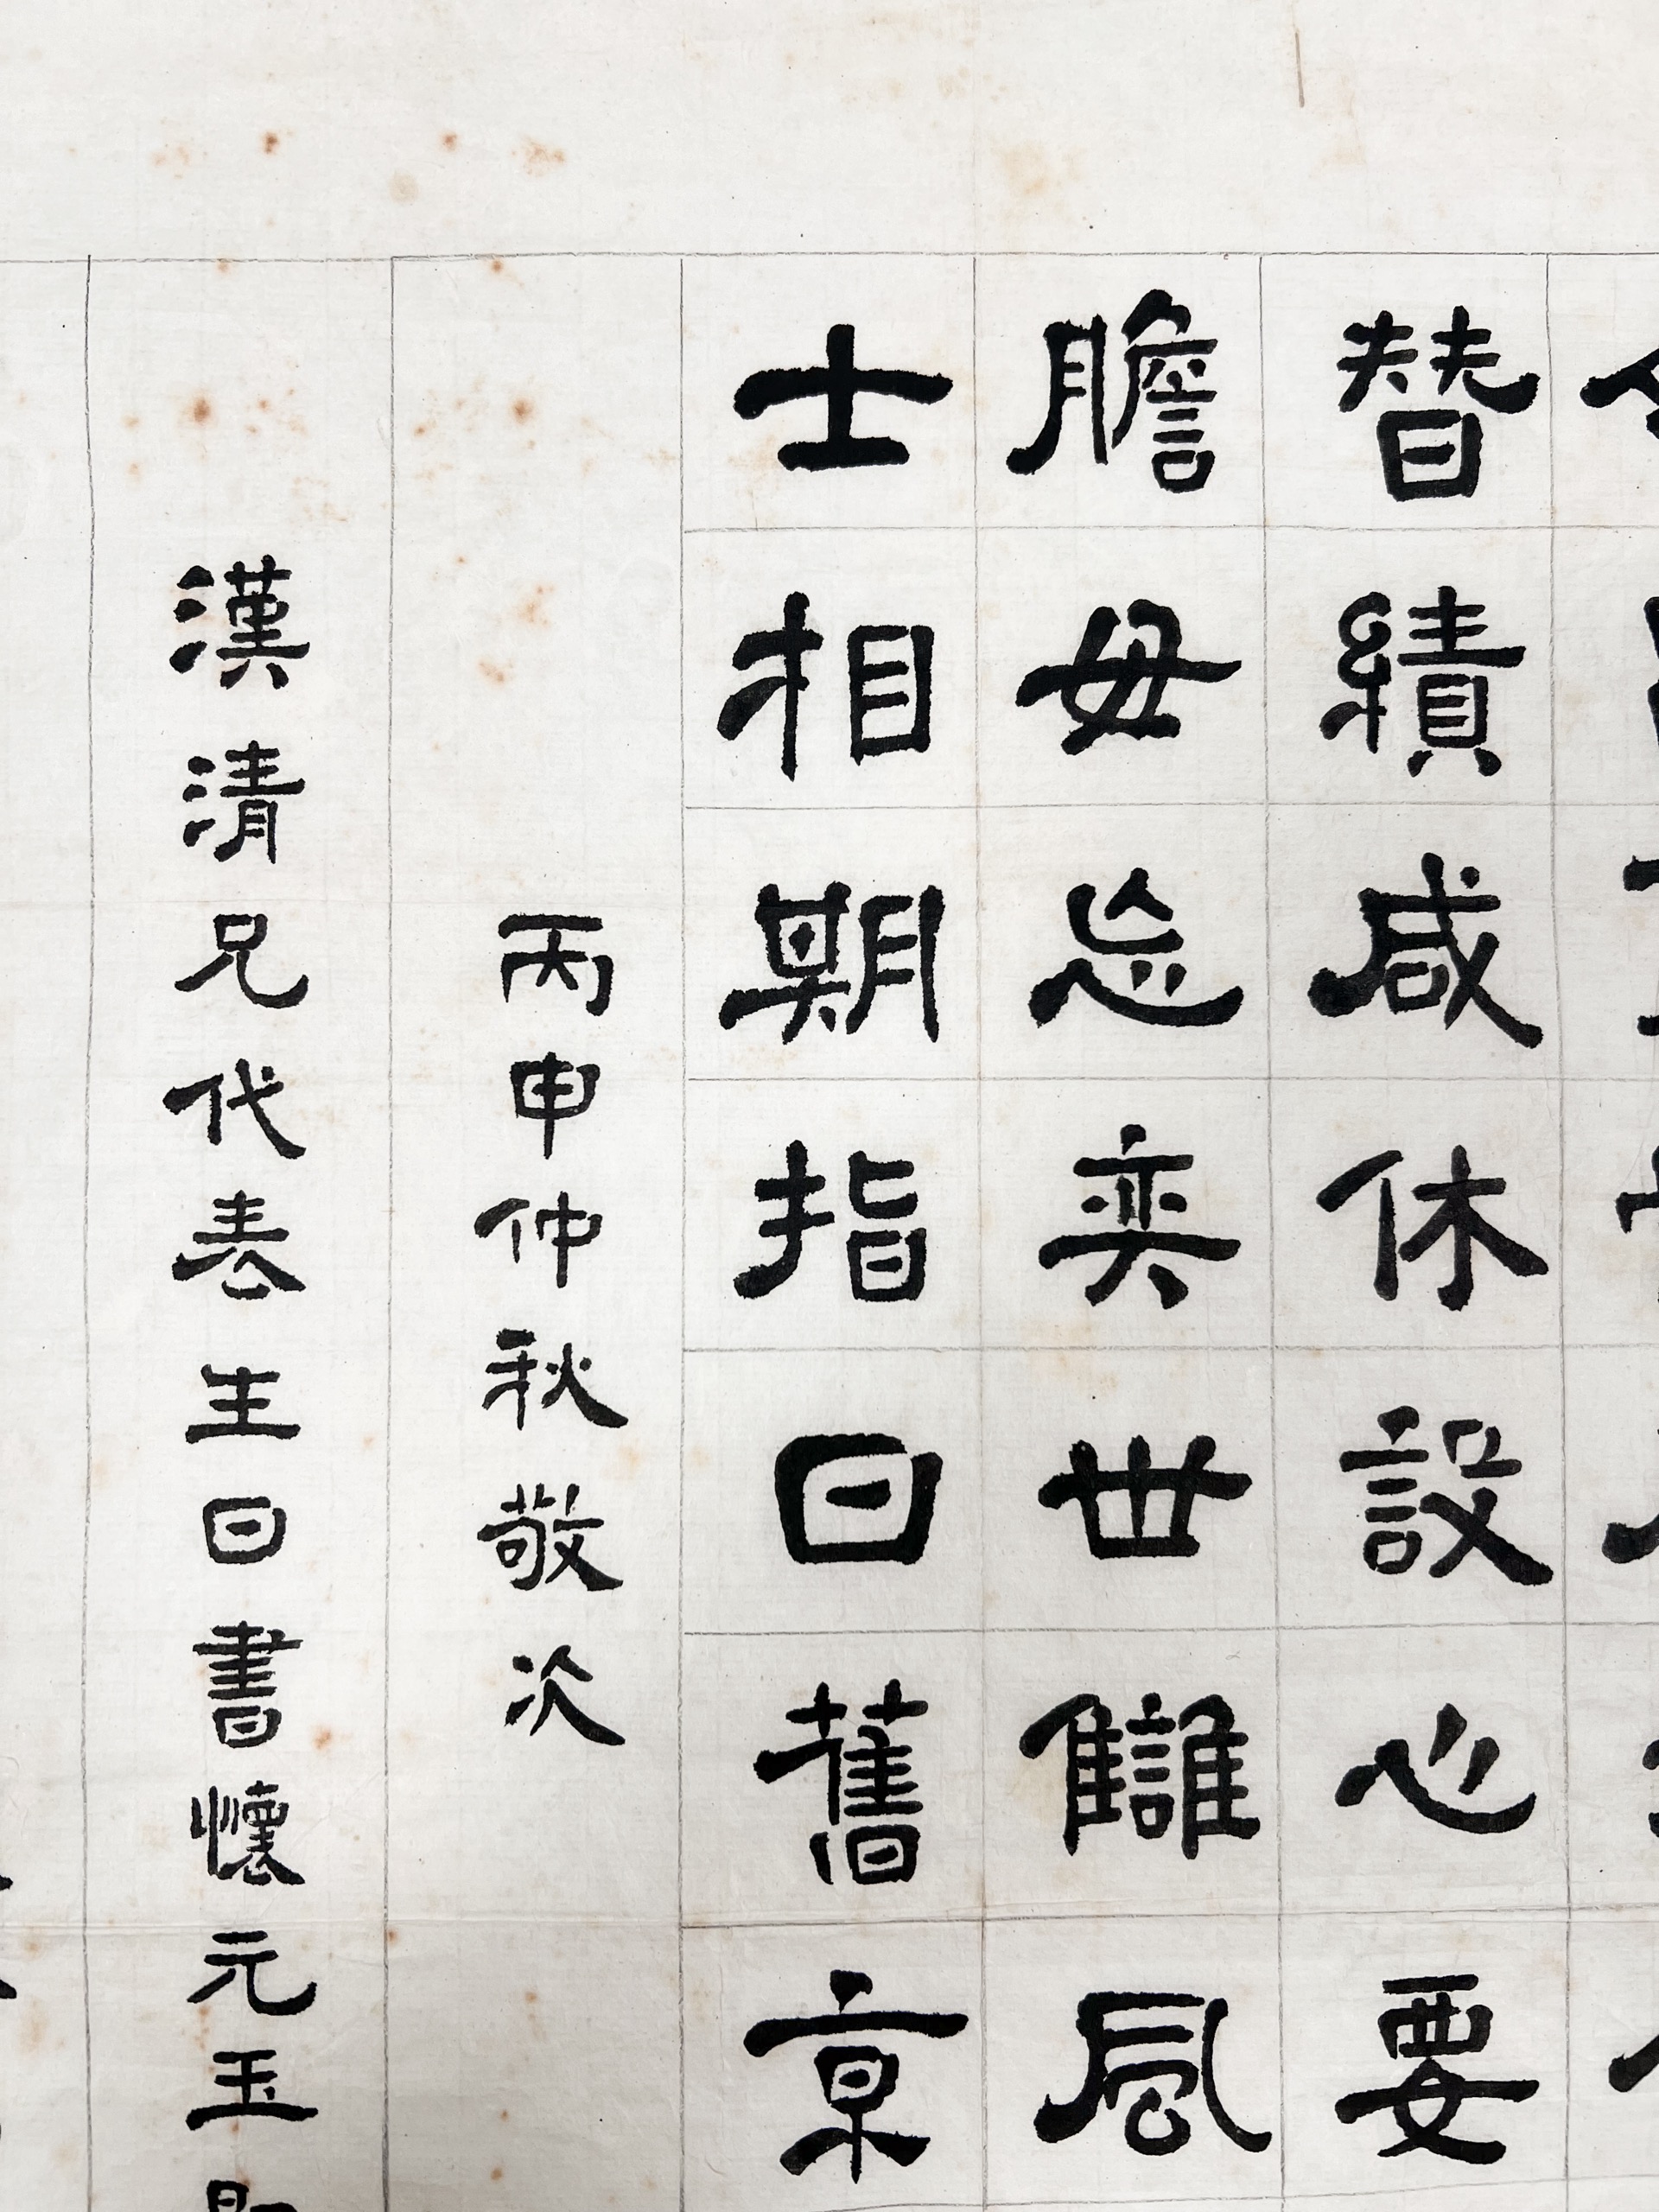 替績咸休設心要
膽毋忘奕世讎風
士相期指日舊京
丙申仲秋敬次
漢清兄代表生日書懷元玉